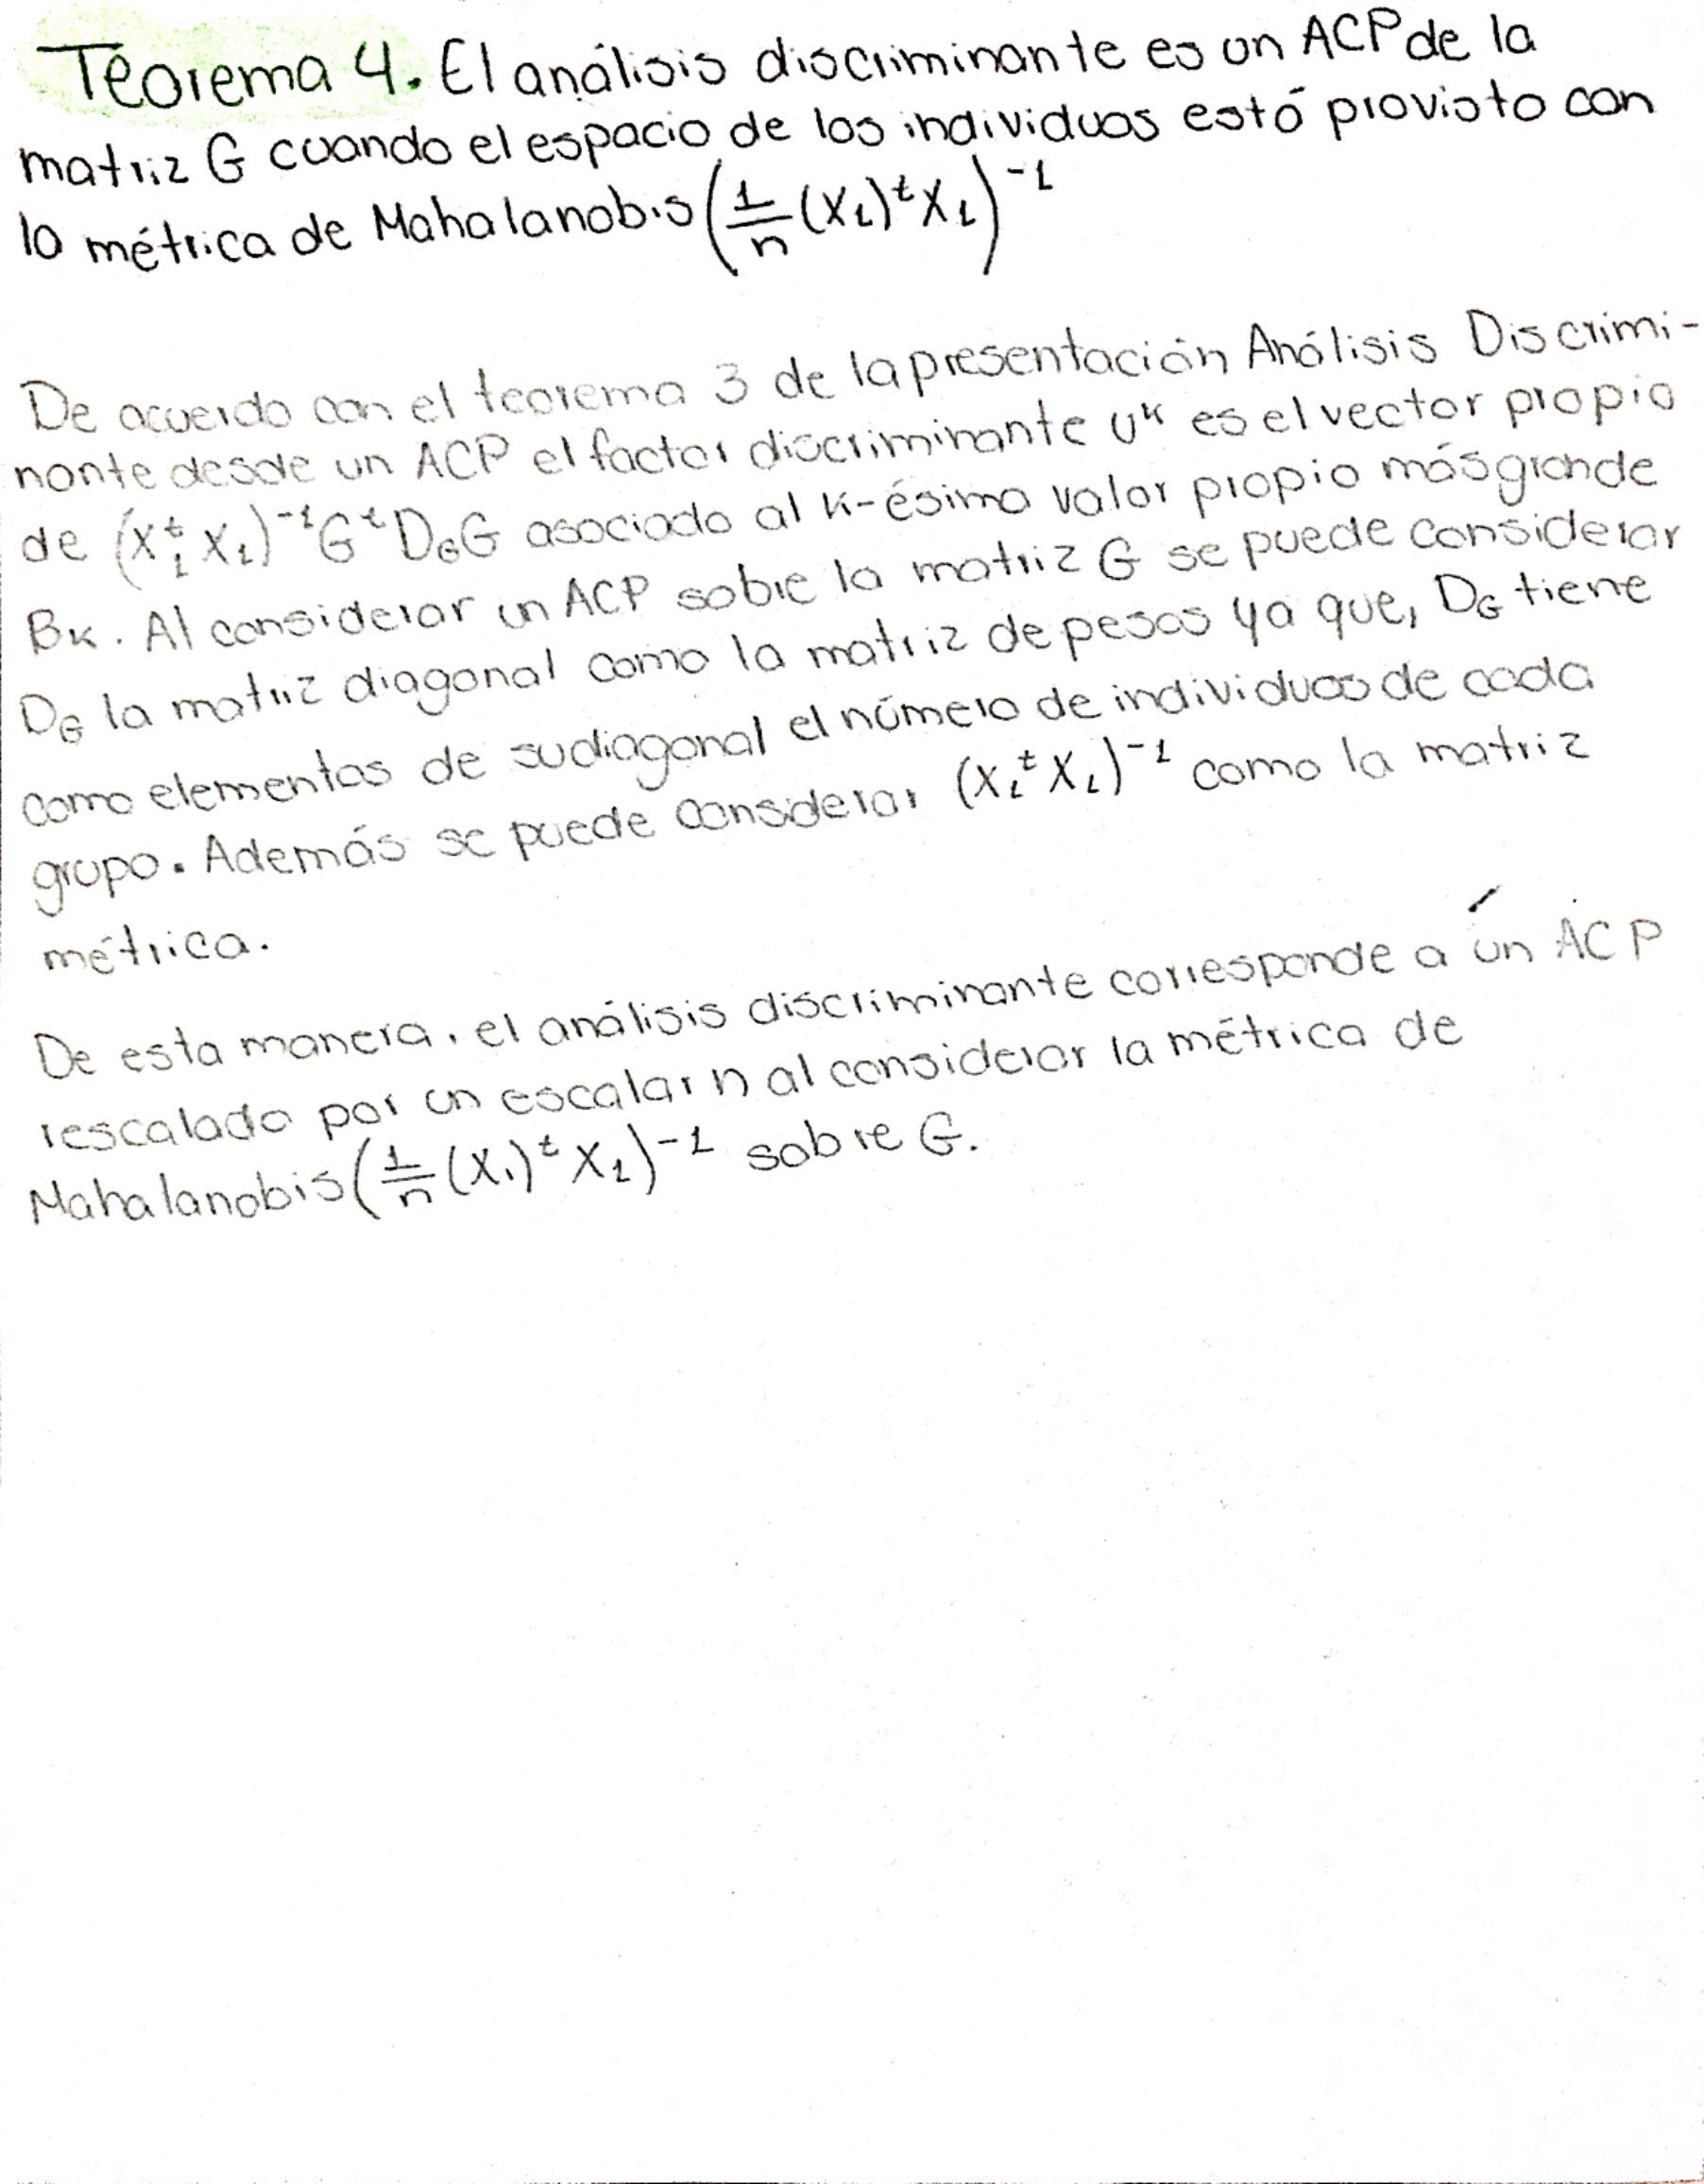 Teorema 4. El análisis discriminante es un ACP de la
matriz G cuando el espacio de los individuos está provisto con
la métrica de Mahalanobis (1/n (X₁)ᵗX₁)⁻¹
De acuerdo con el teorema 3 de la presentación Análisis Discrimi-
nante desde un ACP el factor discriminante uᵏ es el vector propio
de (X₁ᵗ X₁)⁻¹GᵗD_G G asociado al k-ésimo valor propio más grande
βₖ. Al considerar un ACP sobre la matriz G se puede considerar
D_G la matriz diagonal como la matriz de pesos ya que, D_G tiene
como elementos de su diagonal el número de individuos de cada
grupo. Además se puede considerar (X₁ᵗX₁)⁻¹ como la matriz
métrica.
De esta manera, el análisis discriminante corresponde a un ACP
rescalado por un escalar n al considerar la métrica de
Mahalanobis (1/n (X₁)ᵗX₁)⁻¹ sobre G.